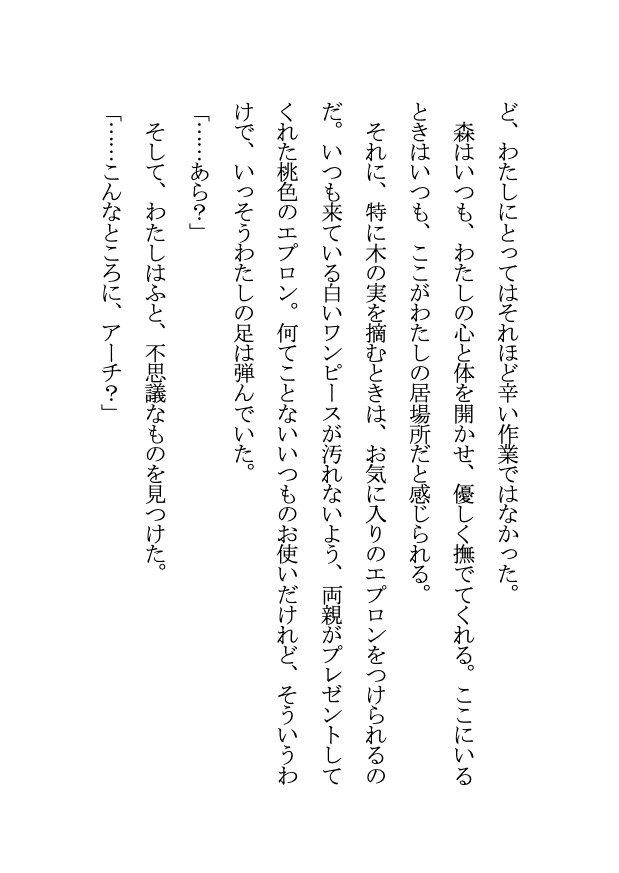 ど、わたしにとってはそれほど辛い作業ではなかった。
　森はいつも、わたしの心と体を開かせ、優しく撫でてくれる。ここにいる
ときはいつも、ここがわたしの居場所だと感じられる。
　それに、特に木の実を摘むときは、お気に入りのエプロンをつけられるの
だ。いつも来ている白いワンピースが汚れないよう、両親がプレゼントして
くれた桃色のエプロン。何てことないいつものお使いだけれど、そういうわ
けで、いっそうわたしの足は弾んでいた。
「……あら？」
　そして、わたしはふと、不思議なものを見つけた。
「……こんなところに、アーチ？」